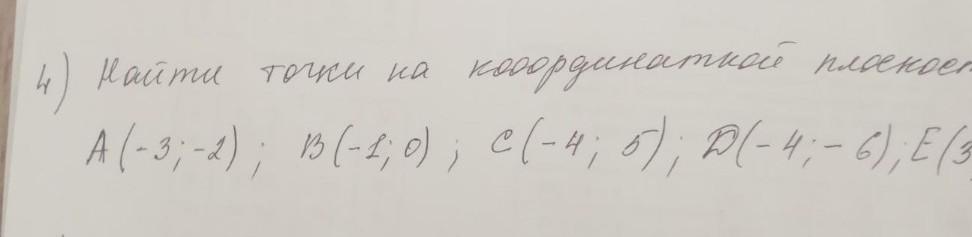 4) Найти точки на кооординаткой плоскос
A (-3; -2) ; B (-1; 0) ; C (-4; 5) ; D (-4; -6) ; E (3